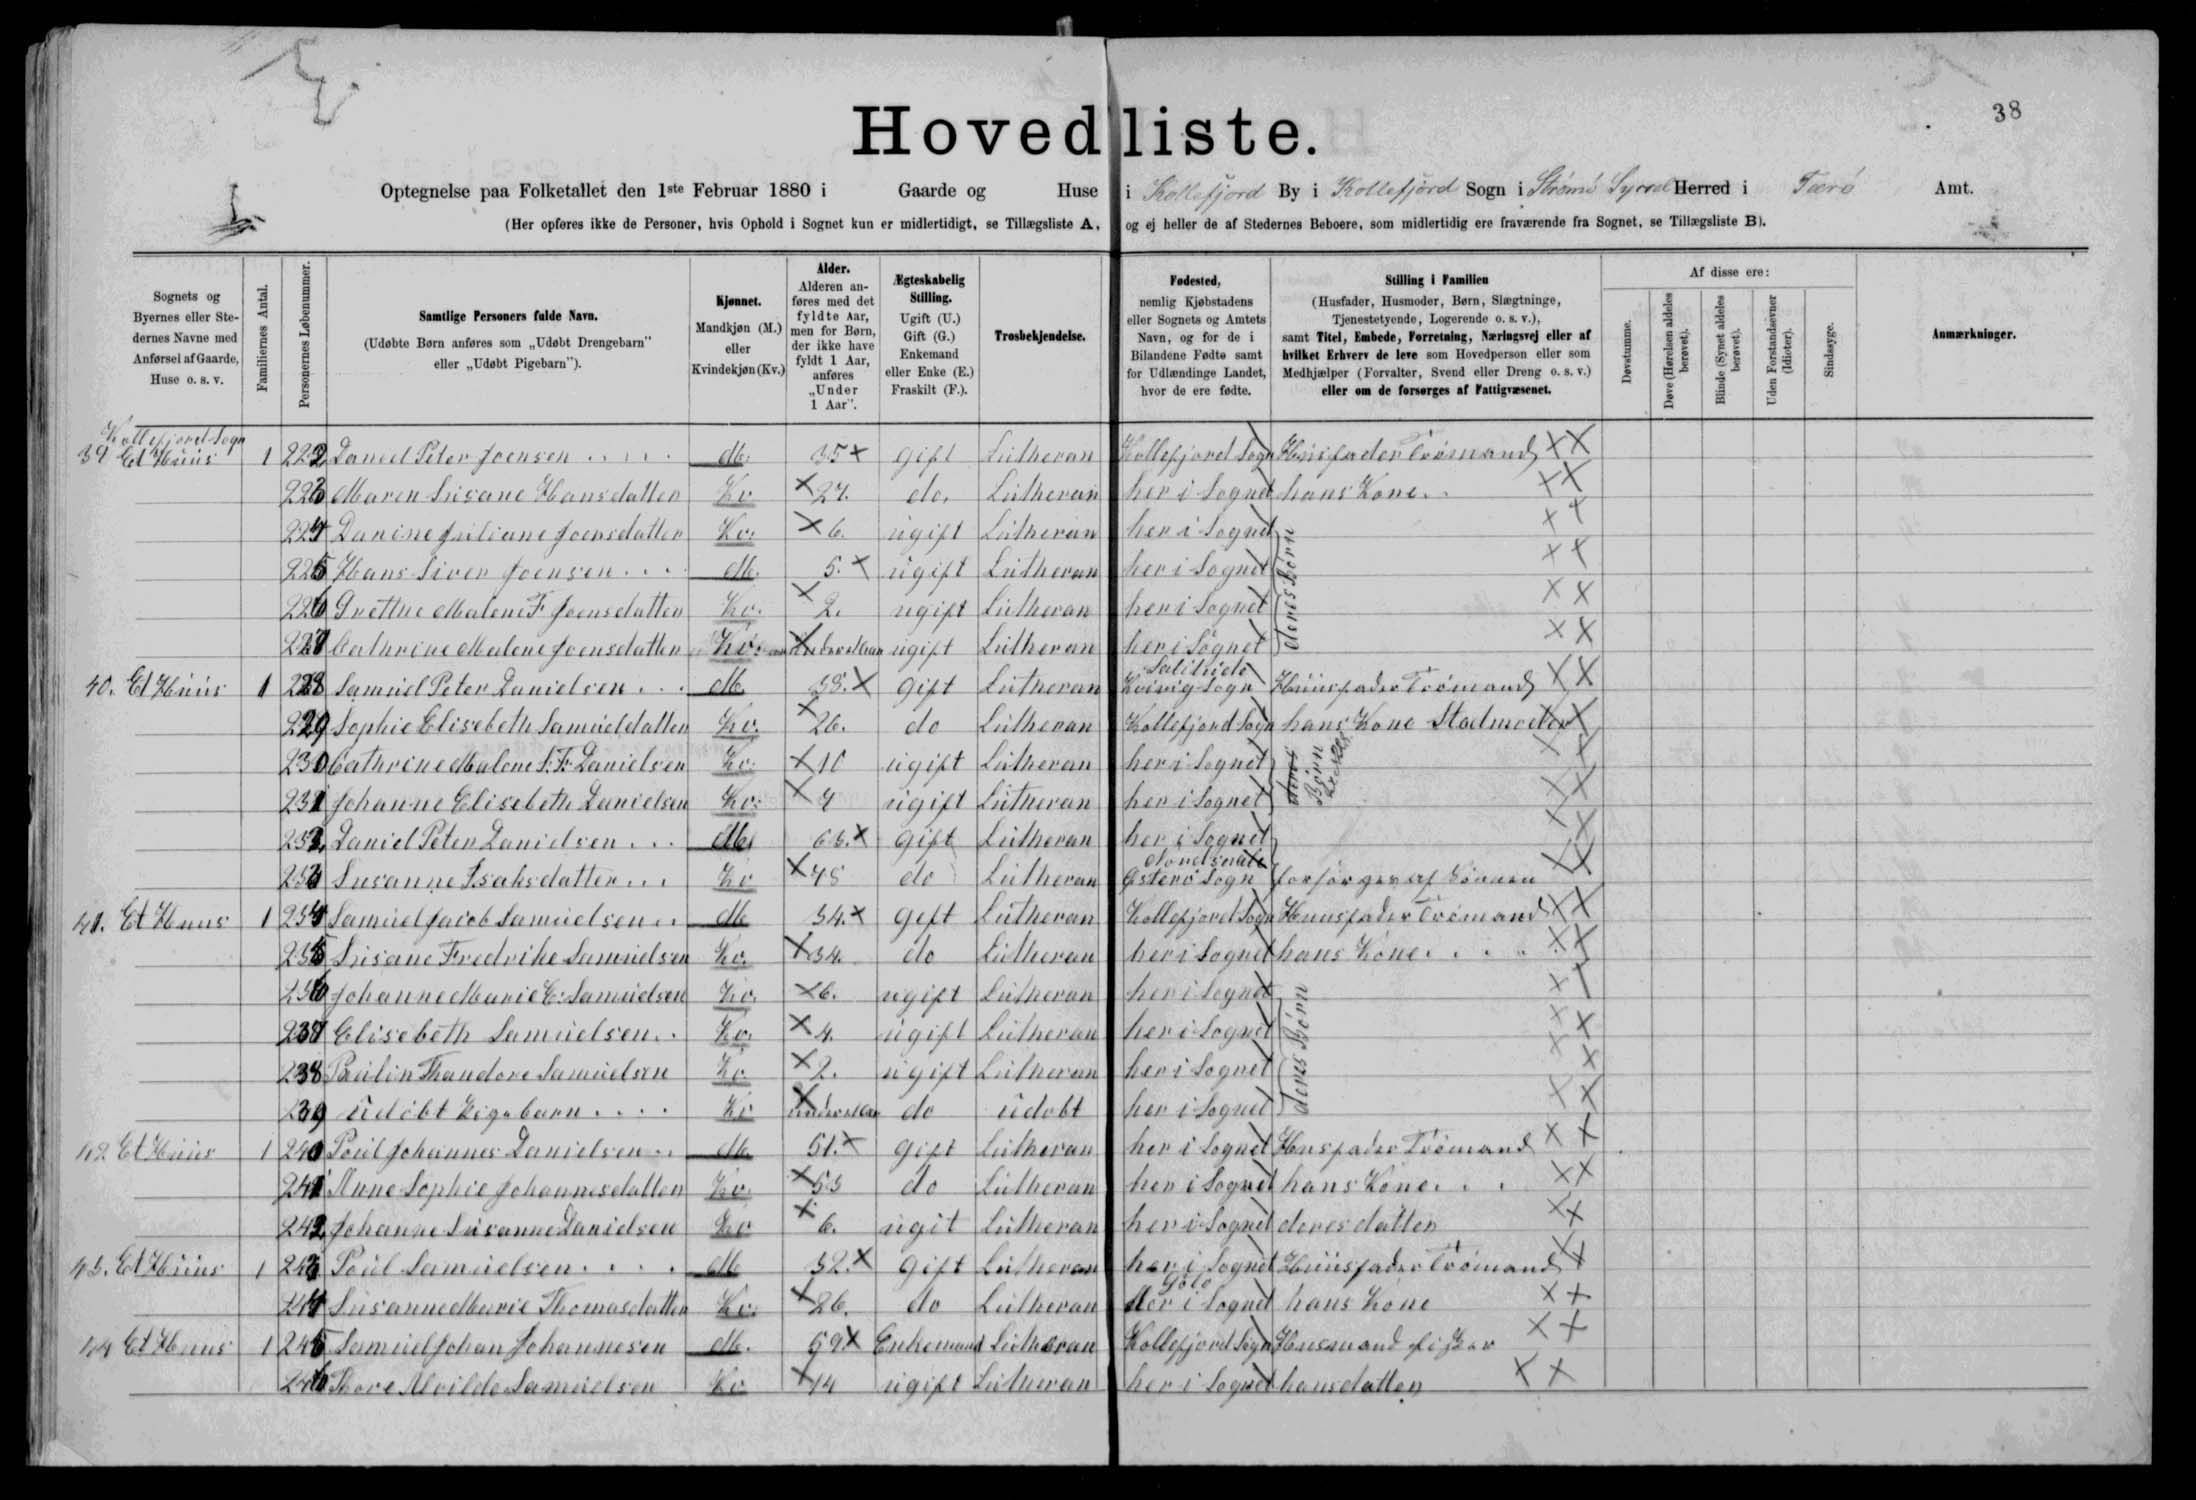 38
Hovedliste.
Optegnelse paa Folketallet den 1ste Februar 1880 i Gaarde og Huse i Kollefjord By i Kollefjord Sogn i Strømø Syssel Herred i Færø Amt.
(Her opføres ikke de Personer, hvis Ophold i Sognet kun er midlertidigt, se Tillægsliste A, og ej heller de af Stedernes Beboere, som midlertidig ere fraværende fra Sognet, se Tillægsliste B).
Sognets og Byernes eller Stedernes Navne med Anførsel af Gaarde, Huse o. s. v.
Familiernes Antal.
Personernes Løbenummer.
Samtlige Personers fulde Navn.
(Udøbte Børn anføres som „Udøbt Drengebarn" eller „Udøbt Pigebarn").
Kjønnet.
Mandkjøn (M.) eller Kvindekjøn (Kv.)
Alder.
Alderen anføres med det fyldte Aar, men for Børn, der ikke have fyldt 1 Aar, anføres „Under 1 Aar".
Ægteskabelig Stilling.
Ugift (U.) Gift (G.) Enkemand eller Enke (E.) Fraskilt (F.).
Trosbekjendelse.
Fødested,
nemlig Kjøbstadens eller Sognets og Amtets Navn, og for de i Bilandene Fødte samt for Udlændinge Landet, hvor de ere fødte.
Stilling i Familien
(Husfader, Husmoder, Børn, Slægtninge, Tjenestetyende, Logerende o. s. v.),
samt Titel, Embede, Forretning, Næringsvej eller af hvilket Erhverv de leve som Hovedperson eller som Medhjælper (Forvalter, Svend eller Dreng o. s. v.) eller om de forsørges af Fattigvæsenet.
Af disse ere:
Døvstumme.
Døve (Hørelsen aldeles berøvet).
Blinde (Synet aldeles berøvet).
Uden Forstandsevner (Idioter).
Sindssyge.
Anmærkninger.
Kollefjord Sogn
39 Et Huus 1 222 Daniel Peter Joensen M. 35 x gift Lutheran Kollefjord Sogn Huusfader Trømand XX
223 Maren Susane Hansdatter Kv x 27. do. Lutheran her i Sognet hans Kone XX
224 Danine Juliane Joensdatter Kv. x 6. ugift Lutheran her i Sognet XX
deres Børn
225 Hans Siver Joensen M. 5. x ugift Lutheran her i Sognet XX
226 Grethe Malene F Joensdatter Kv. x 2. ugift Lutheran her i Sognet XX
227 Cathrine Malene Joensdatter Kv. x ugift Lutheran her i Sognet XX
40. Et Huus 1 228 Samuel Peter Danielsen M. 38. x gift Lutheran Kvivig Sogn Huusfader Trømand XX
229 Sophie Elisebeth Samueldatter Kv. x 26. do Lutheran Kollefjord Sogn hans Kone Stedmoder X
230 Cathrine Malene F. F. Danielsen Kv. x 10 ugift Lutheran her i Sognet XX
deres Børn
231 Johanne Elisebeth Danielsen Kv. x ugift Lutheran her i Sognet XX
232 Daniel Peter Danielsen M. 63. x gift Lutheran her i Sognet XX
233 Susanne Isaksdatter Kv x do Lutheran Østerø Sogn XX
41. Et Huus 1 234 Samuel Jacob Samuelsen M 34. x gift Lutheran Kollefjord Sogn Huusfader Trømand XX
235 Susane Fredrike Samuelsen Kv. x 34. do Lutheran her i Sognet hans Kone XX
236 Johanne Marie E. Samuelsen Kv. x 6. ugift Lutheran her i Sognet XX
deres Børn
237 Elisebeth Samuelsen Kv. x 4. ugift Lutheran her i Sognet XX
238 Paulin Thandore Samuelsen Kv. x 2. ugift Lutheran her i Sognet XX
239 udøbt Pigebarn Kv x do udøbt her i Sognet XX
42. Et Huus 1 240 Poul Johannes Danielsen M. 51. x gift Lutheran her i Sognet Husfader Trømand XX
241 Anne Sophie Johannesdatter Kv. x 53 do Lutheran her i Sognet hans Kone XX
242 Johanne Susanne Danielsen Kv x 6. ugit Lutheran her i Sognet deres datter XX
43. Et Huus 1 243 Poul Samuelsen M 32. x gift Lutheran her i Sognet Huusfader Trømand XX
244 Susanne Marie Thomasdatter Kv. x 26. do Lutheran i Sognet hans Kone XX
44 Et Huus 1 245 Samuel Johan Johannesen M. 59 x Enkemand Lutheran Kollefjord Sogn Husmand fisker XX
246 Thore Alvilde Samuelsen Kv x 14 ugift Lutheran her i Sognet hans datter XX